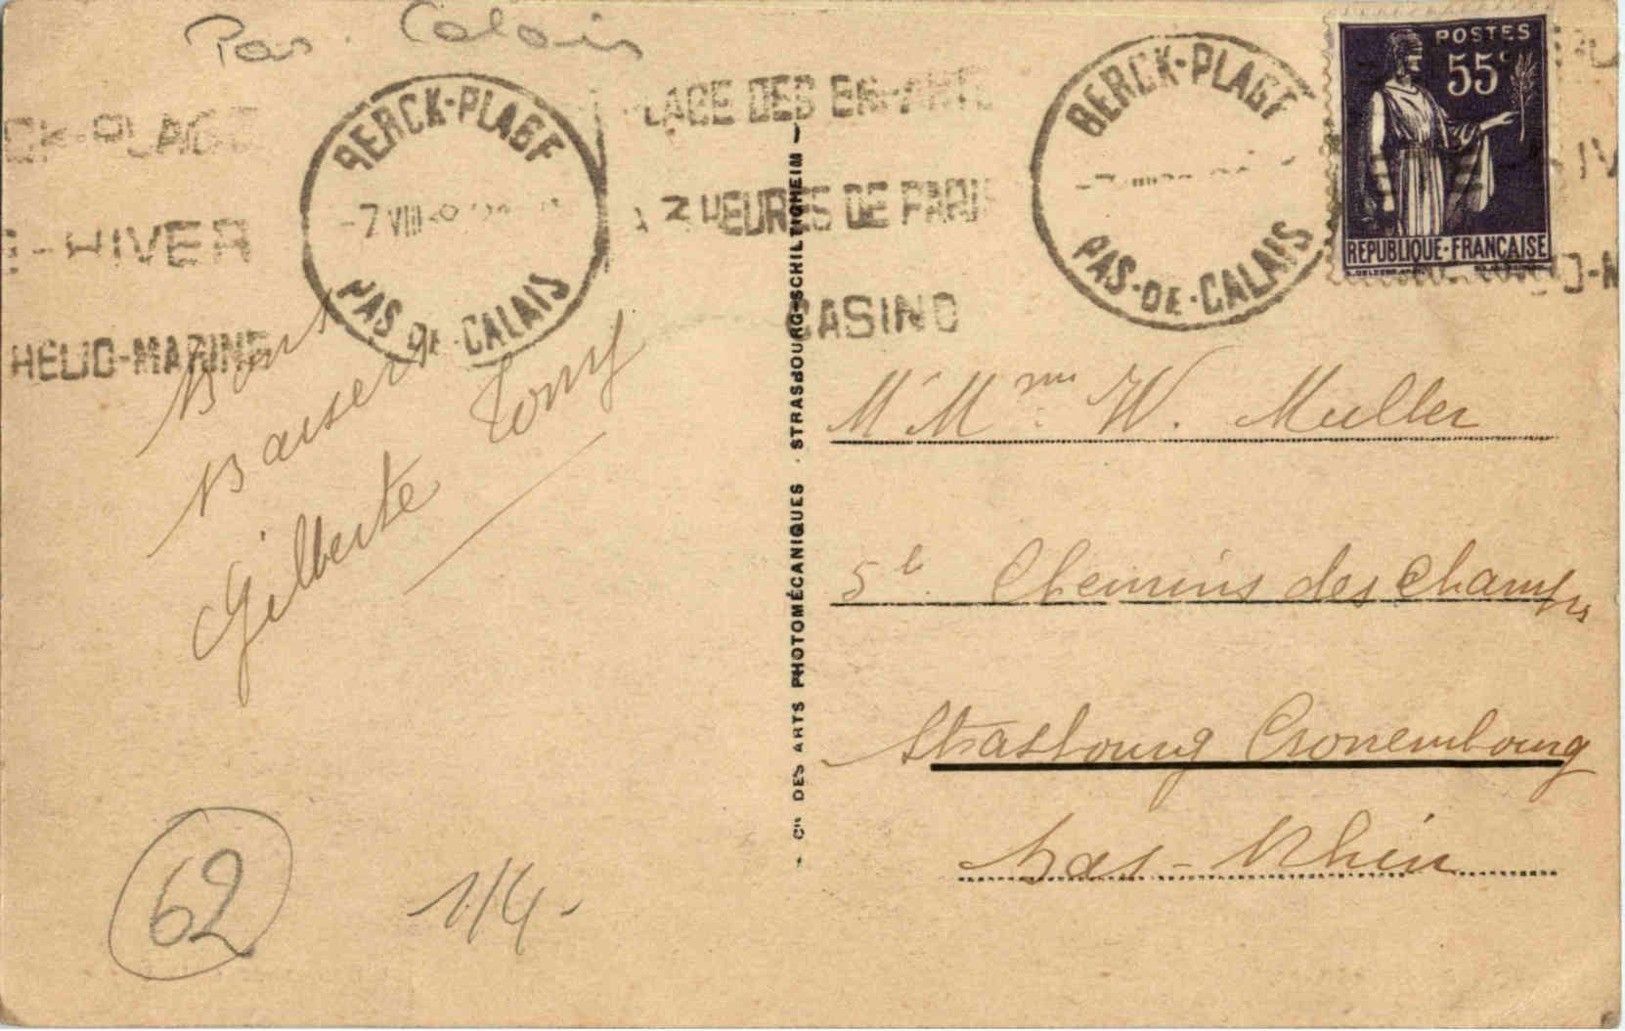 Pas. Calais
POSTES
55c
REPUBLIQUE-FRANÇAISE
BERCK-PLAGE
-7 VIII
PAS DE-CALAIS
PLAGE DES ENFANTS
A 3 HEURES DE PARIS
CASINO
BERCK-PLAGE
-7
PAS-DE-CALAIS
CK-PLAGE
-HIVER
HELIO-MARINE
Bons
Baisers
Gilberte Tony
Cie DES ARTS PHOTOMÉCANIQUES - STRASBOURG-SCHILTIGHEIM
Mr Mme W. Muller
5b. Chemins des Champs
Strasbourg Cronenbourg
Bas-Rhin
62
1/4-